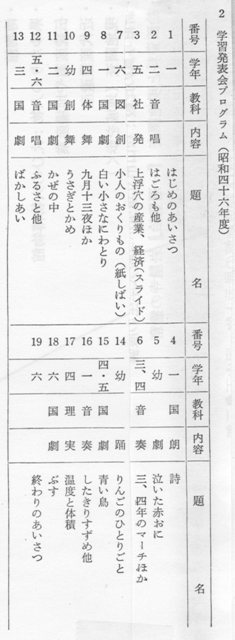 2 学習発表会プログラム(昭和四十六年度)
番号 学年 教科 内容 題名
1 一 はじめのあいさつ
2 二 音 唱 はごろも他
3 五 社 発 上浮穴の産業、経済(スライド)
7 六 図 創 小人のおくりもの(紙しばい)
8 一 国 劇 白い小さなにわとり
9 四 体 舞 九月十三夜ほか
10 幼 創 舞 うさぎとかめ
11 二 国 劇 かぜの中
12 五・六 音 唱 ふるさと他
13 三 国 劇 ばかしあい
番号 学年 教科 内容 題名
4 一 国 朗 詩
5 幼 劇 泣いた赤おに
6 三、四 音 奏 三、四年のマーチほか
14 幼 踊 りんごのひとりごと
15 四・五 国 劇 青い鳥
16 一 音 奏 したきりすずめ他
17 四 理 実 温度と体積
18 六 国 劇 ぶす
19 六 終わりのあいさつ